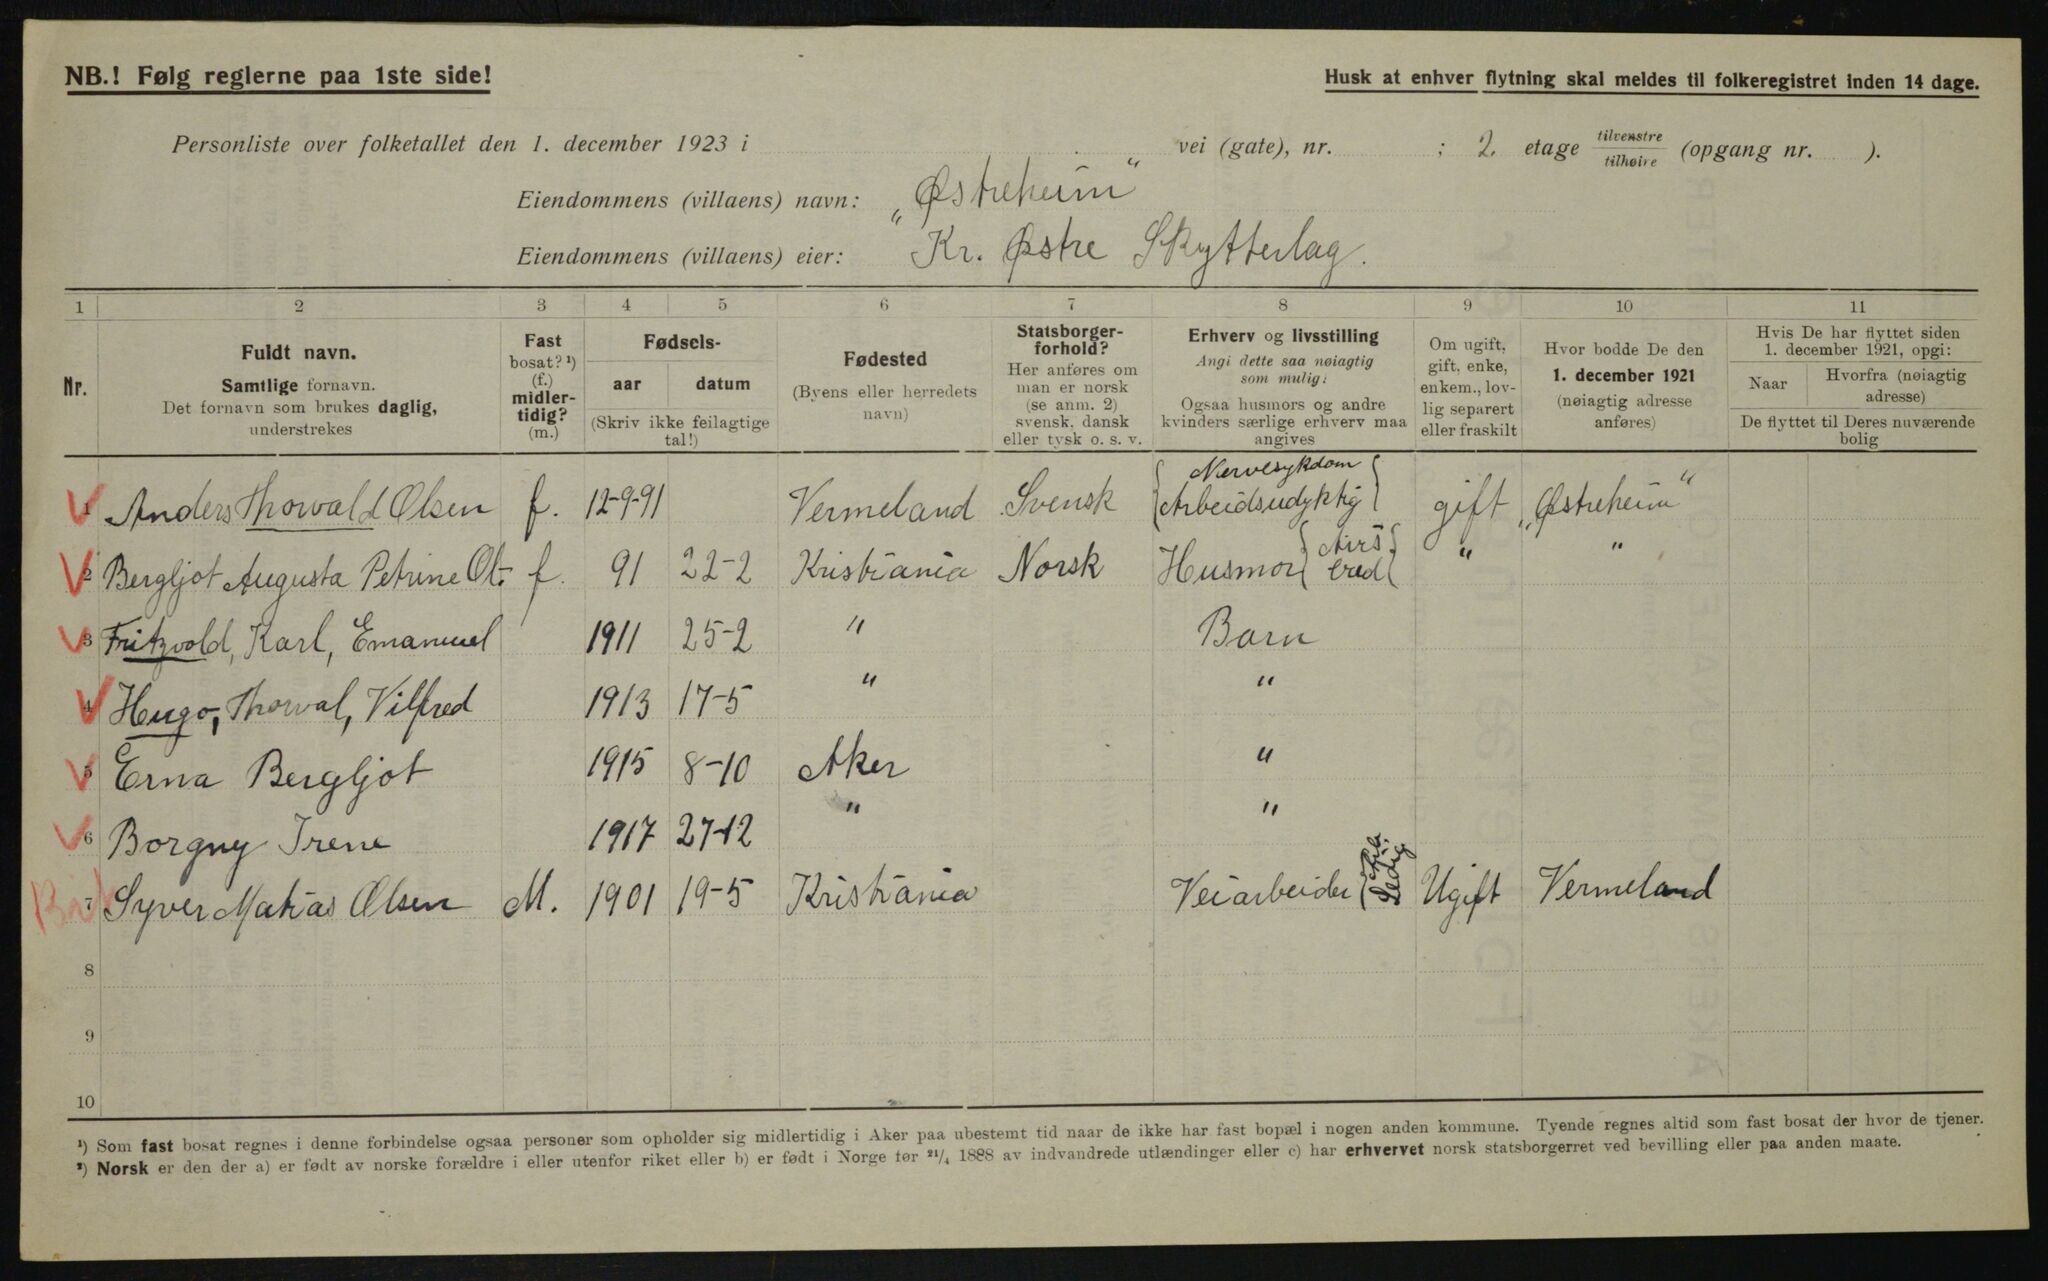 NB.! Følg reglerne paa 1ste side!
Husk at enhver flytning skal meldes til folkeregistret inden 14 dage.
Personliste over folketallet den 1. december 1923 i vei (gate), nr. ; 2. etage tilvenstre / tilhøire (opgang nr. ).
Eiendommens (villaens) navn: „Østreheim"
Eiendommens (villaens) eier: Kr. Østre Skytterlag.
1 2 3 4 5 6 7 8 9 10 11
Nr.
Fuldt navn.
Samtlige fornavn.
Det fornavn som brukes daglig,
understrekes
Fast
bosat? ¹)
(f.)
midler-
tidig?
(m.)
Fødsels-
aar datum
(Skriv ikke feilagtige
tal!)
Fødested
(Byens eller herredets
navn)
Statsborger-
forhold?
Her anføres om
man er norsk
(se anm. 2)
svensk, dansk
eller tysk o. s. v.
Erhverv og livsstilling
Angi dette saa nøiagtig
som mulig:
Ogsaa husmors og andre
kvinders særlige erhverv maa
angives
Om ugift,
gift, enke,
enkem., lov-
lig separert
eller fraskilt
Hvor bodde De den
1. december 1921
(nøiagtig adresse
anføres)
Hvis De har flyttet siden
1. december 1921, opgi:
Naar Hvorfra (nøiagtig
adresse)
De flyttet til Deres nuværende
bolig
Nervesykdom
1 Anders Thorvald Olsen f. 12-9-91 Vermeland Svensk Arbeidsudyktig gift „Østreheim"
2 Bergljot Augusta Petrine Ol- f. 91 22-2 Kristiania Norsk Husmor " "
3 Fritzvold, Karl, Emanuel 1911 25-2 " Barn
4 Hugo, Thorval, Vilfred 1913 17-5 " "
5 Erna Bergljot 1915 8-10 Aker "
6 Borgny Irene 1917 27-12 " "
7 Syver Matias Olsen M. 1901 19-5 Kristiania Veiarbeider ledig Ugift Vermeland
8
9
10
¹) Som fast bosat regnes i denne forbindelse ogsaa personer som opholder sig midlertidig i Aker paa ubestemt tid naar de ikke har fast bopæl i nogen anden kommune. Tyende regnes altid som fast bosat der hvor de tjener.
²) Norsk er den der a) er født av norske forældre i eller utenfor riket eller b) er født i Norge før 21/4 1888 av indvandrede utlændinger eller c) har erhvervet norsk statsborgerret ved bevilling eller paa anden maate.